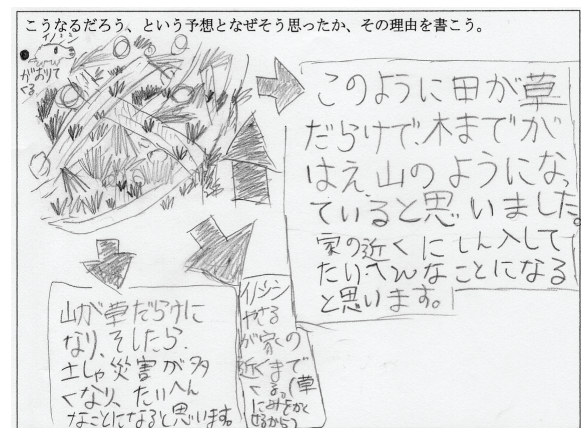 こうなるだろう、という予想となぜそう思ったか、その理由を書こう。
イノシシ
がおりて
くる
このように田が草
だらけで、木までが
はえ、山のようになっ
ていると思いました。
家の近くにしん入して
たいへんなことになる
と思います。
山が草だらけに
なり、そしたら、
土しゃ災害が多
くなり、たいへん
なことになると思います。
イノシシ
が家の
近くまで
くる。(草
にみをかく
せるから)